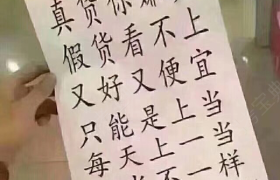 真货你嫌
假货看不上
又好又便宜
只能是上当
每天上一当
不一样